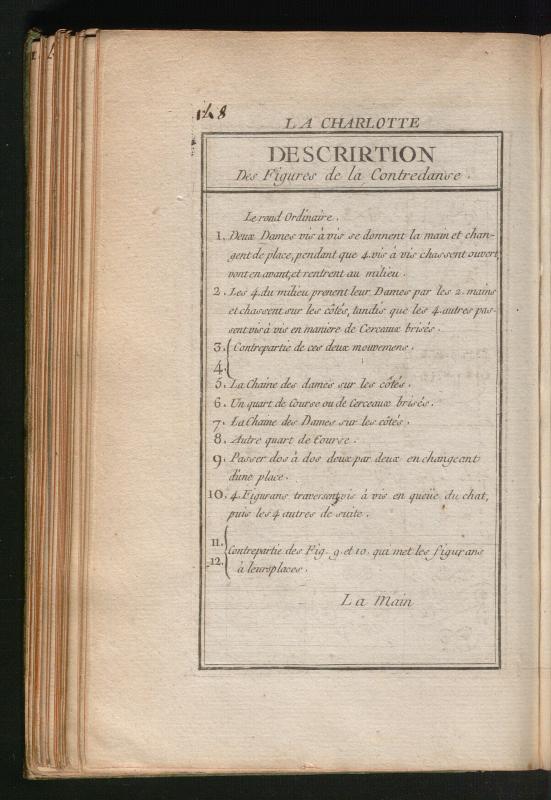 148
LA CHARLOTTE
DESCRIRTION
Des Figures de la Contredanse.
Le rond Ordinaire.
1. Deux Dames vis à vis se donnent la main et chan-
gent de place, pendant que 4. vis à vis chassent ouvert,
vont en avant, et rentrent au milieu.
2. Les 4. du milieu prenent leur Dames par les 2. mains
et chassent sur les côtés, tandis que les 4 autres pas-
sent vis à vis en maniere de Cerceaux brisés.
3. Contrepartie de ces deux mouvemens.
4.
5. La Chaine des dames sur les côtés.
6. Un quart de Course ou de Cerceaux brisés.
7. La Chaine des Dames sur les côtés.
8. Autre quart de Course.
9. Passer dos à dos deux par deux en changeant
d'une place.
10. 4. Figurans traversent vis à vis en queüe du chat,
puis les 4 autres de suite.
11.
Contrepartie des Fig. 9. et 10. qui met les figurans
12.
à leurs places.
La Main